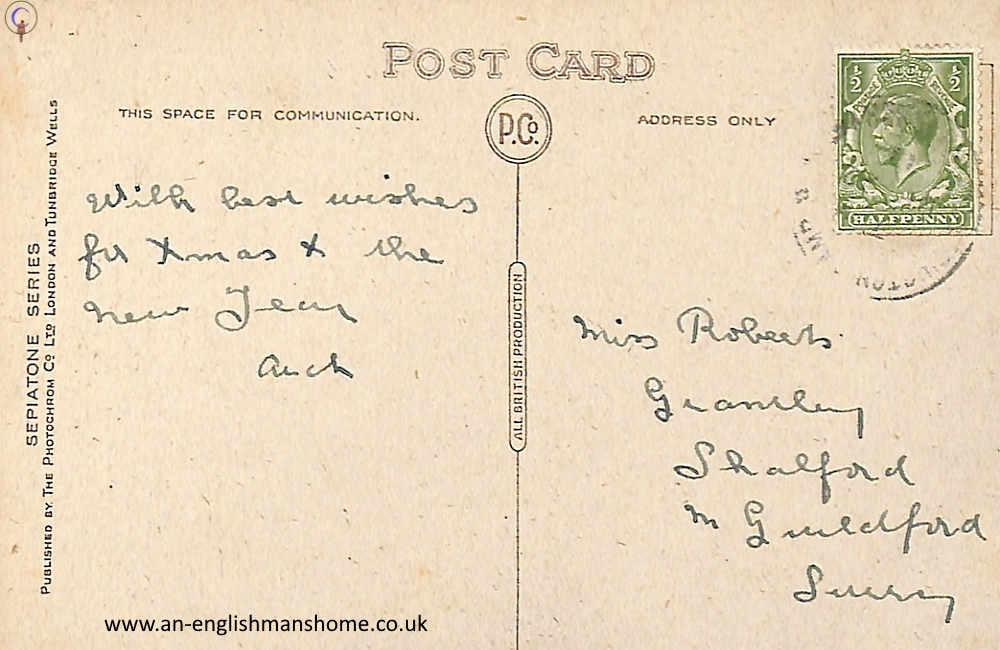 POST CARD
THIS SPACE FOR COMMUNICATION.
P.Co.
ADDRESS ONLY
½ ½
POSTAGE REVENUE
HALFPENNY
With best wishes
for Xmas & the
new Year
Arch
Miss Roberts
Grantley
Shalford
Nr Guildford
Surrey
ALL BRITISH PRODUCTION
SEPIATONE SERIES
PUBLISHED BY THE PHOTOCHROM CO LTD LONDON AND TUNBRIDGE WELLS
www.an-englishmanshome.co.uk